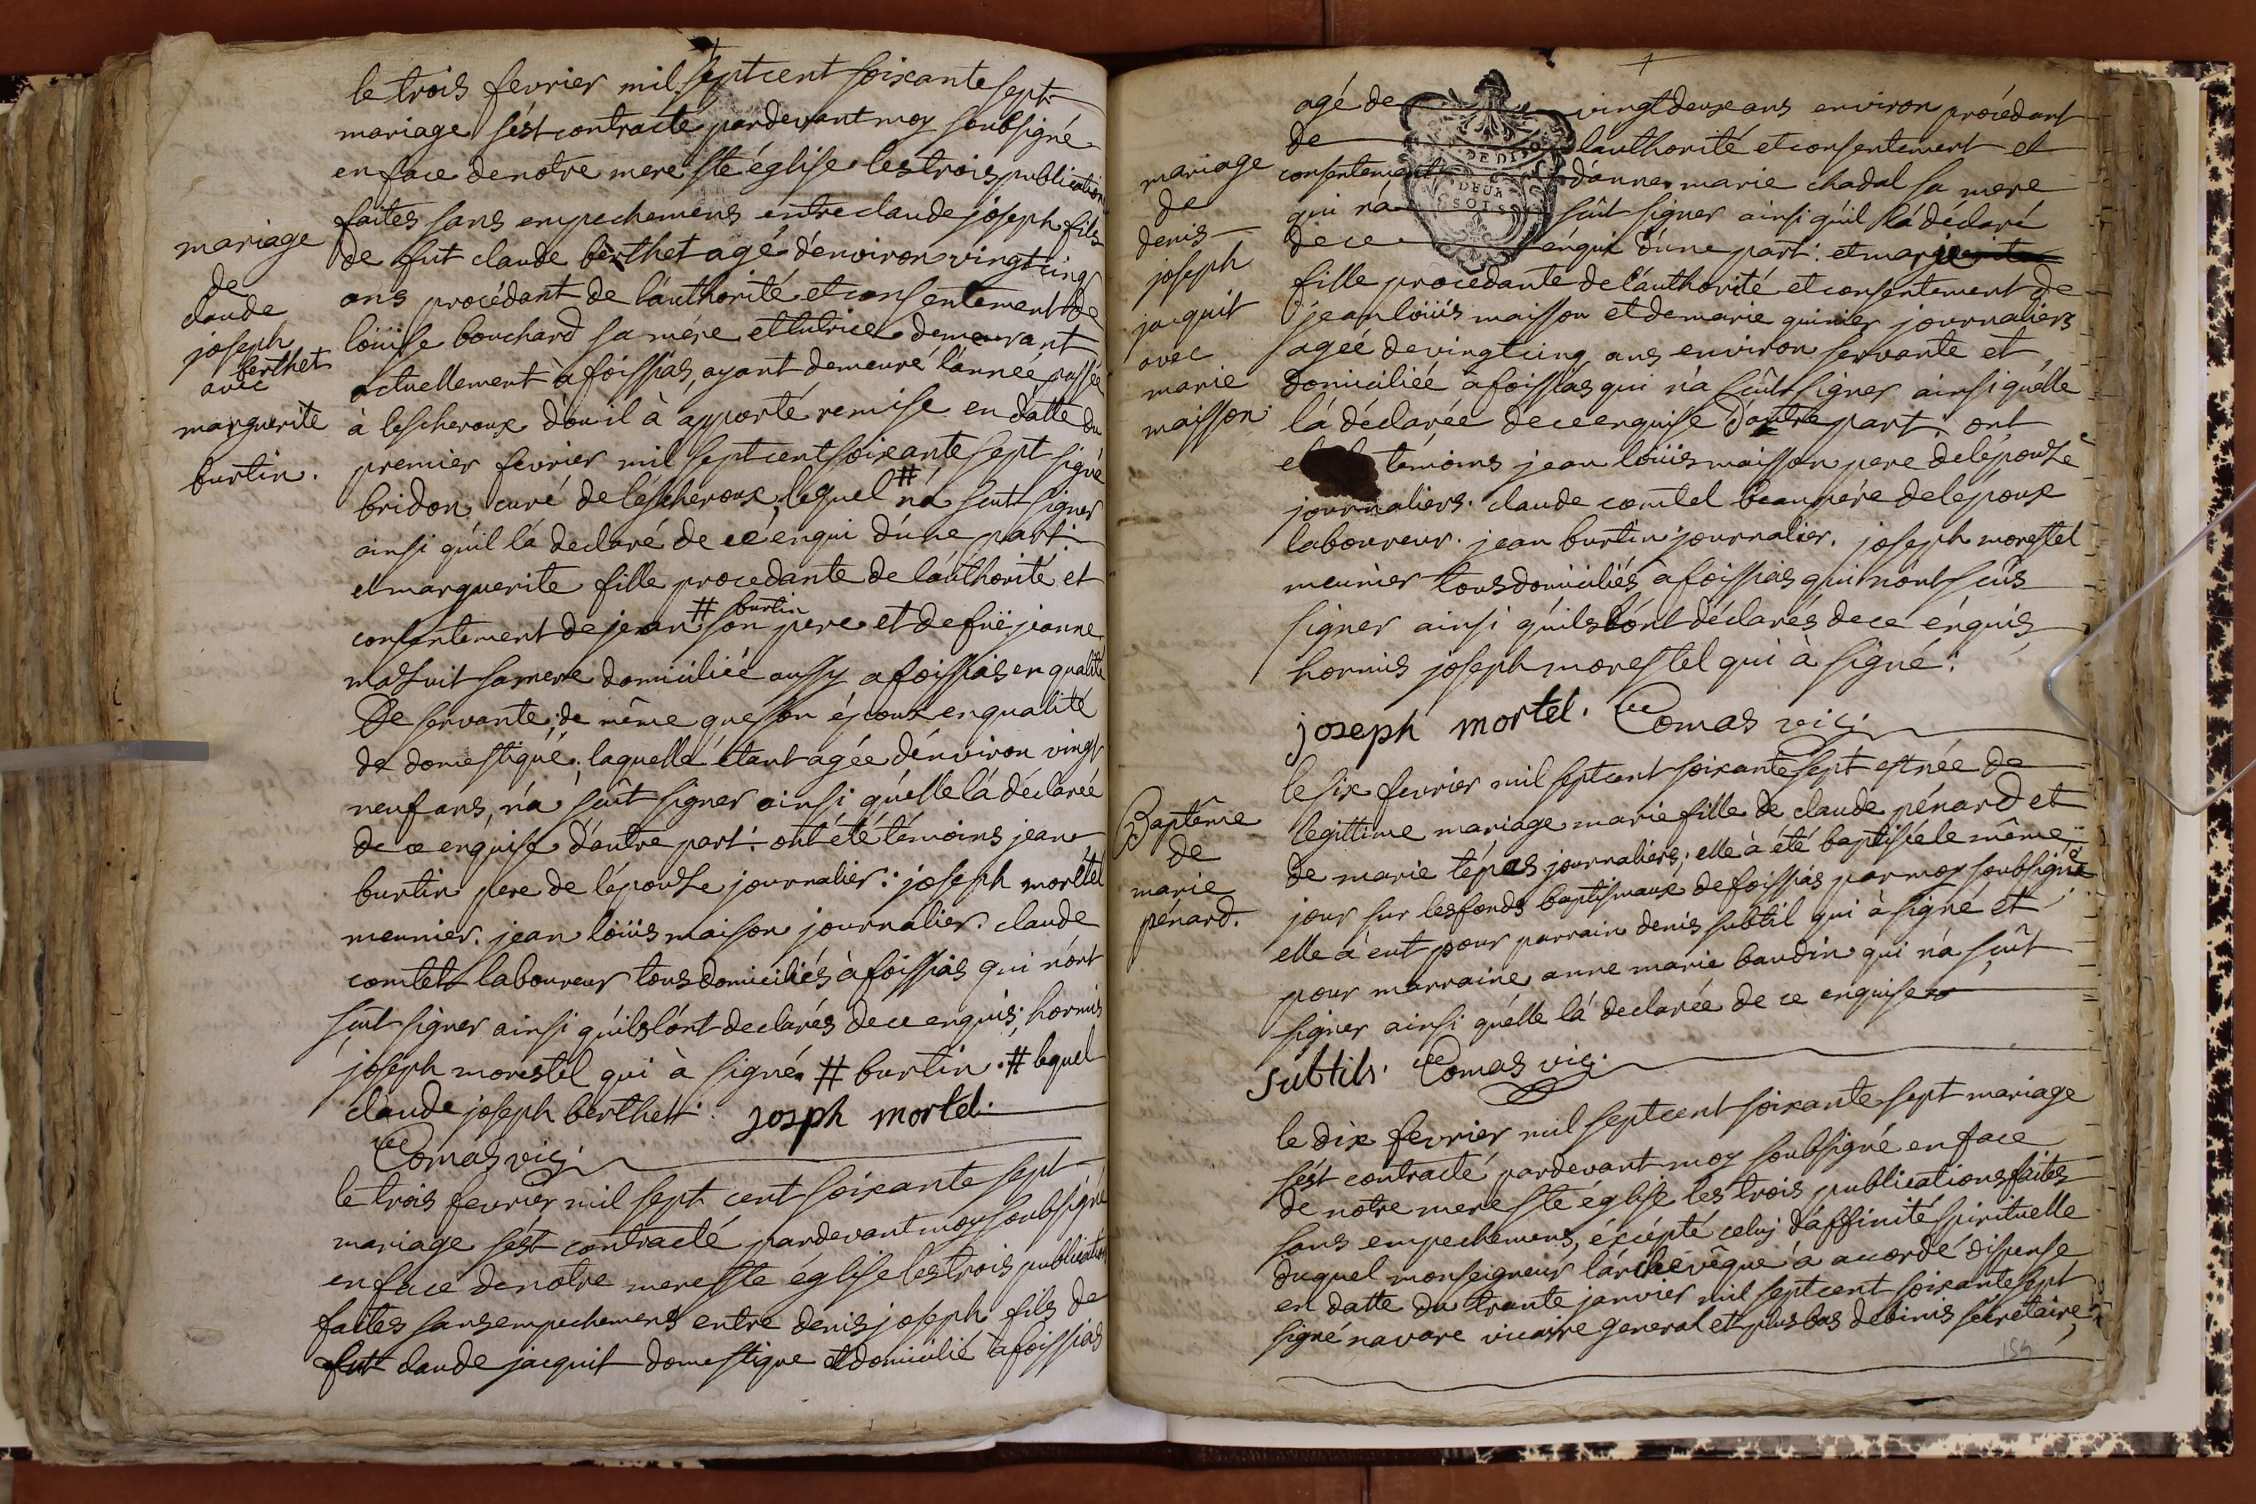 le trois fevrier mil sept cent soixante sept
mariage s'ést contracté pardevant moy soubsigné
en face de notre mere ste église les trois publications
faites sans empechemens entre claude joseph fils
de fut claude berthet agé d'environ vingt cinq
ans procédant de l'authorité et consentement de
loüise bouchard sa mére et tutrice demeurant
actuellement à foissias, ayant demeuré l'année passée
à lescheroux d'ou il à apporté remise en datte du
premier fevrier mil sept cent soixante sept signé
bridon curé de léscheroux, lequel # n'á scut signer
ainsi qu'il l'á declaré de ce énqui d'une part.
et marguerite fille procedante de l'authorité et
consentement de jean # burtin son pere et de fuë jeanne
mazuit sa mere domiciliée aussy a foissias en qualité
de servante; de même que son époux en qualité
de domestique; laquelle étant agée d'énviron vingt
neuf ans, n'a scût signer ainsi qu'elle l'á déclarée
de ce enquise d'autre part: ont été témoins jean
burtin pere de l'épouze journalier: joseph morltel
meunier. jean loüis maison journalier. claude
comtet laboureur tous domiciliés à foissias qui n'ónt
scût signer ainsi qu'ils l'ónt declarés de ce enquis; hormis
joseph morestel qui à signé. # burtin. # lequel
claude joseph berthet. josph mortel.
Comas vic;
mariage
de
claude
joseph
berthet
avec
marguerite
burtin.
le trois fevrier mil sept cent soixante sept
mariage s'ést contracté pardevant moy soubsigné
en face de notre mere ste église les trois publications
faites sans empechemens entre denis joseph fils de
fut claude jacquit domestique et domicilié à foissias
agé de vingt deux ans environ procédant
de l'authorité et consentement et
consentement d'anne marie chadal sa mere
qui n'á scût signer ainsi qu'il l'á déclaré
de ce énquis d'une part: et marie
fille procedante de l'authorité et consentement de
jean loüis maisson et de marie guinier journaliers
agéé de vingt cinq ans environ servante et
domiciliéé à foissias qui n'a scût signer ainsi qu'elle
l'á déclarée de ce enquise d'autre part: ont
témoins jean loüis maisson pere de l'épouze
journaliers. claude comtel beaupére de l'époux
laboureur. jean burtin journalier. joseph morestel
meunier tous domiciliés à foissias qui n'ónt scûs
signer ainsi qu'ils l'ónt déclarés de ce énquis
hormis joseph morestel qui à signé:
joseph mortel. Comas vic;
mariage
de
denis
joseph
jacquit
avec
marie
maisson.
DE DIJO
DEUX
SOLS
le six fevrier mil sept cent soixante sept est née de
legittime mariage marie fille de claude pénard et
de marie tépas journaliers; elle à été baptisée le même
jour sur les fonds baptismaux de foissias par moy soubsigné
elle à eut pour parrain denis subtil qui à signé et
pour marraine anne marie baudin qui n'a scût
signer ainsi qu'elle l'á declarée de ce enquise
subtils. Comas vic;
Baptême
de
marie
pénard.
le dix fevrier mil sept cent soixante sept mariage
s'ést contracté pardevant moy soubsigné en face
de notre mere ste église les trois publications faites
sans empechemens, éxcépté celuj d'affinité spirituelle
duquel monseigneur l'árchevêque á accordé dispense
en datte du trante janvier mil sept cent soixante sept
signé navare vicaire general et plus bas debinis sécrétaire;
159